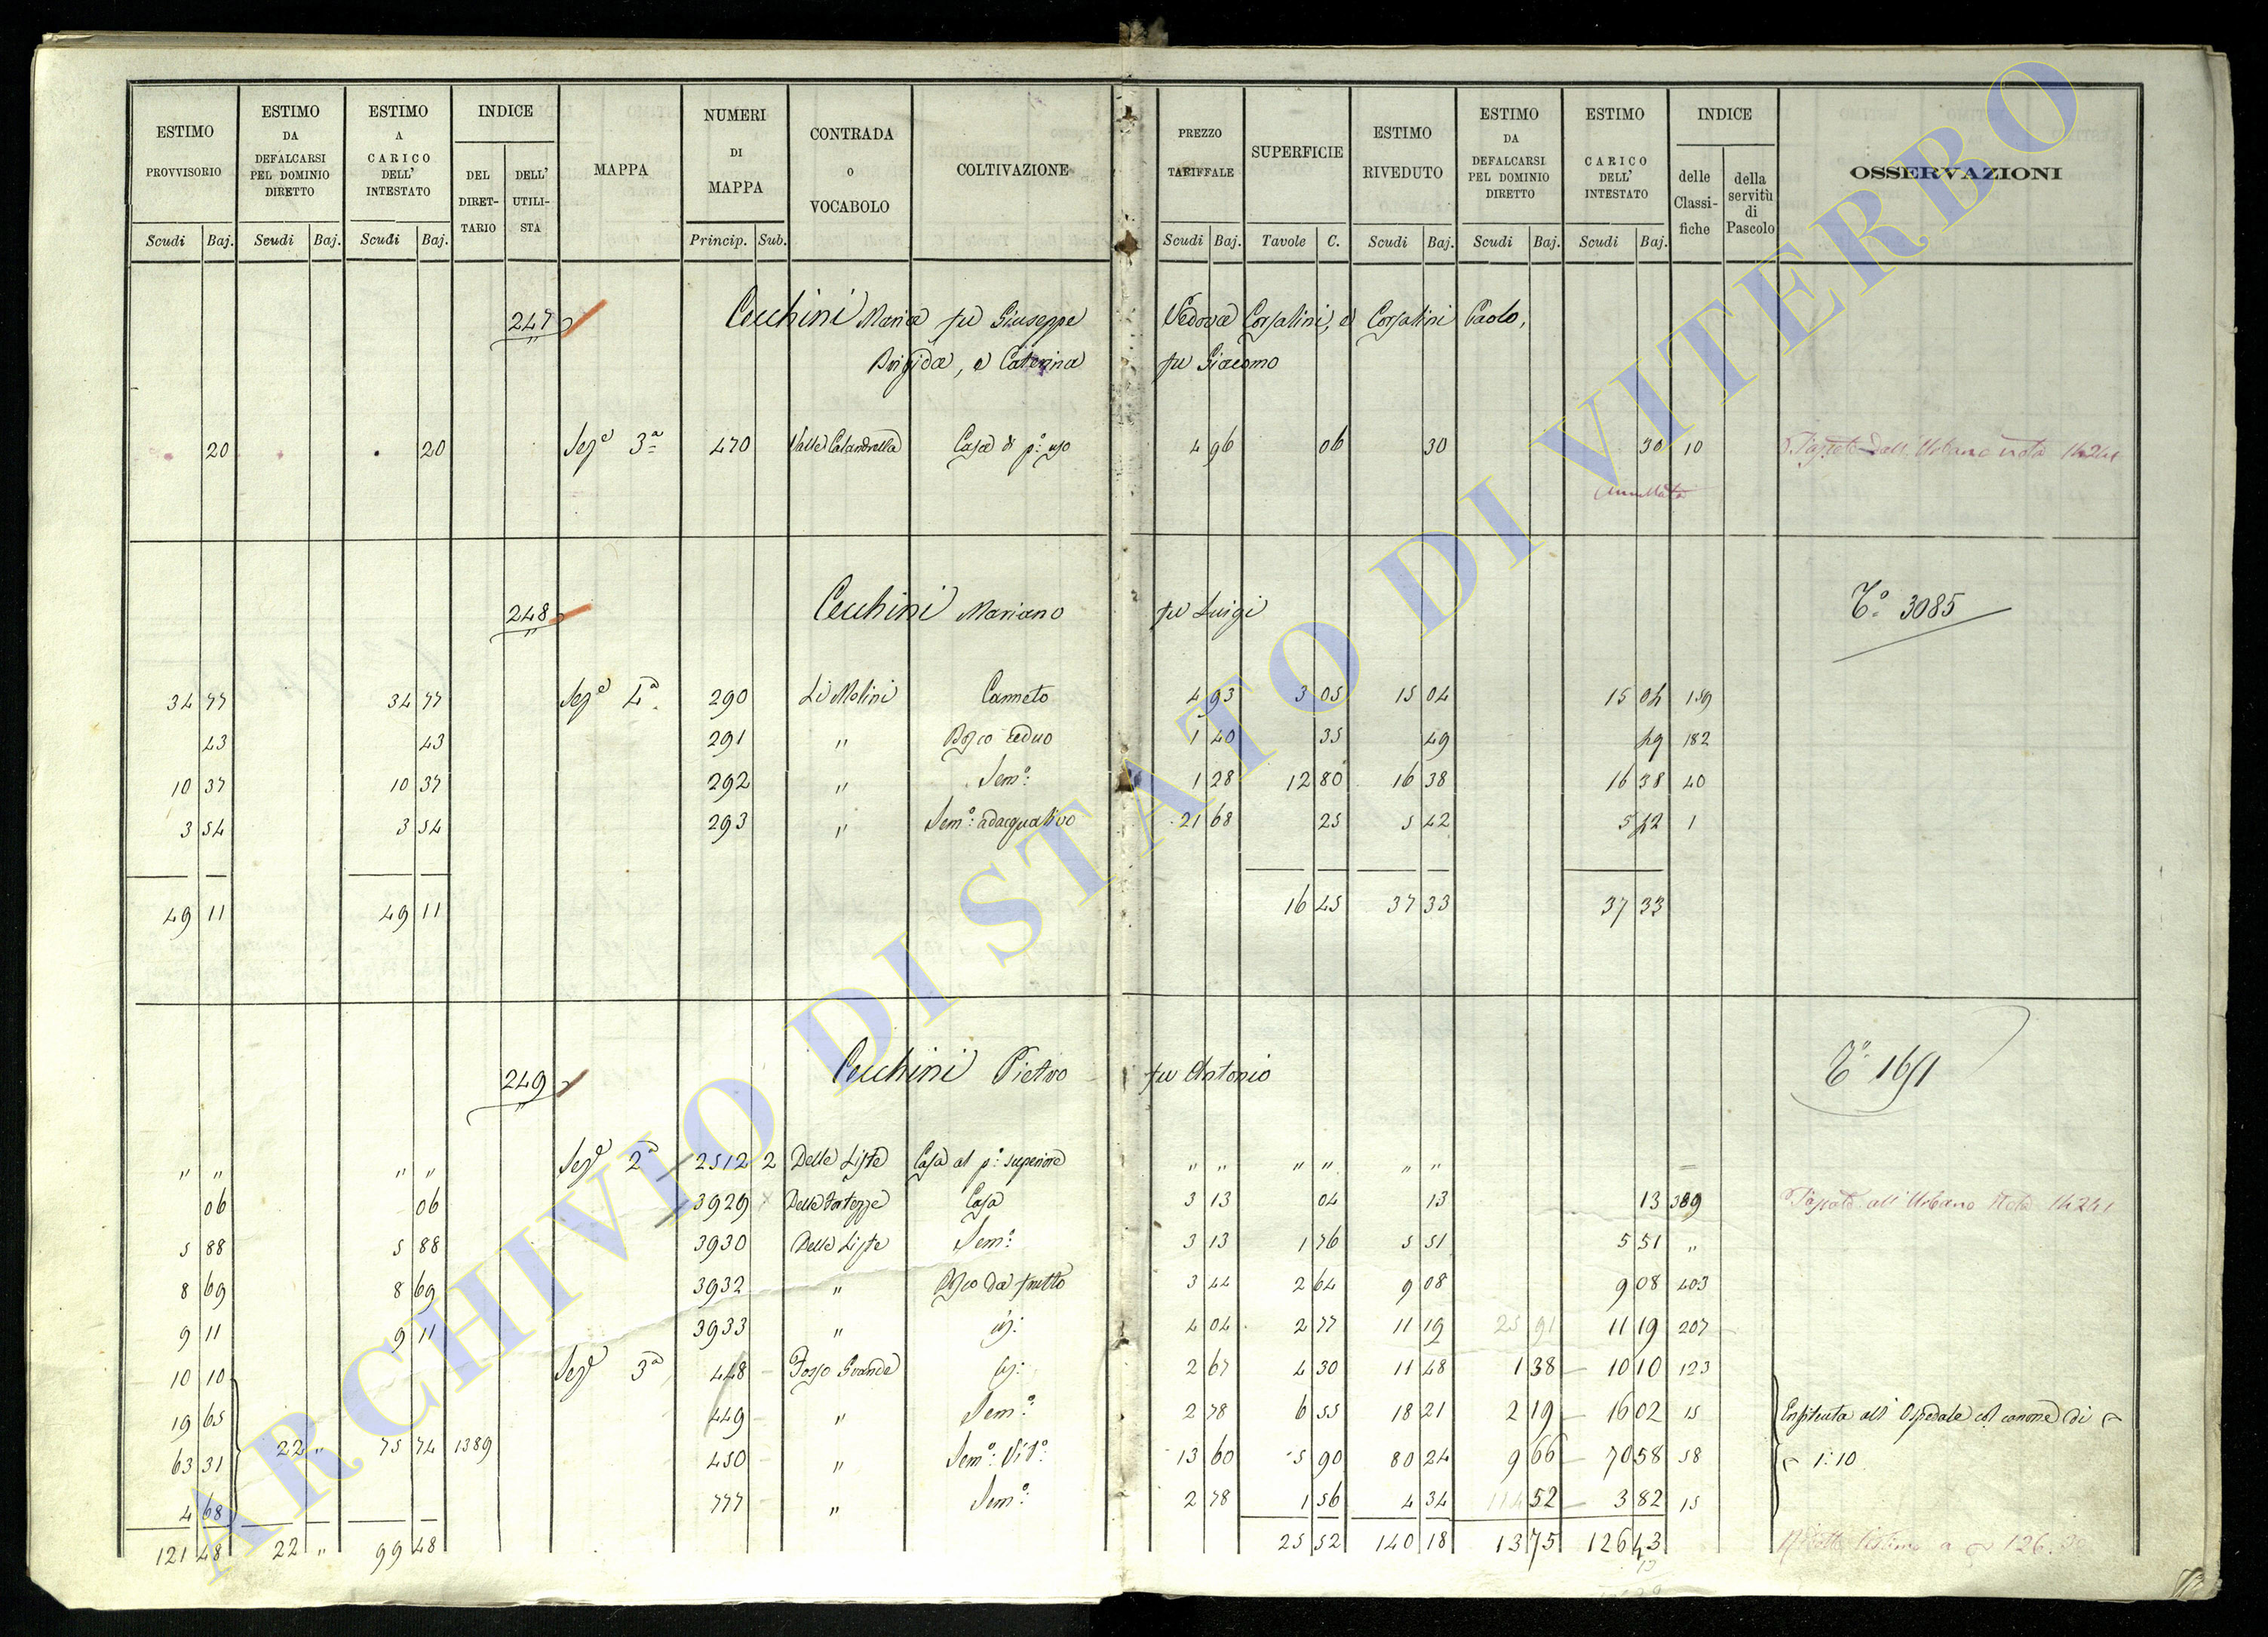 ESTIMO PROVVISORIO | ESTIMO DA DEFALCARSI PEL DOMINIO DIRETTO | ESTIMO A CARICO DELL' INTESTATO | INDICE | MAPPA | NUMERI DI MAPPA | CONTRADA o VOCABOLO | COLTIVAZIONE | PREZZO TARIFFALE | SUPERFICIE | ESTIMO RIVEDUTO | ESTIMO DA DEFALCARSI PEL DOMINIO DIRETTO | ESTIMO CARICO DELL' INTESTATO | INDICE | OSSERVAZIONI
DEL DIRET-TARIO | DELL' UTILI-STA | delle Classi-fiche | della servitù di Pascolo
Scudi | Baj. | Scudi | Baj. | Scudi | Baj. | Princip. | Sub. | Scudi | Baj. | Tavole | C. | Scudi | Baj. | Scudi | Baj. | Scudi | Baj.
247 Cecchini Maria fu Giuseppe Vedova Corsalini, e Corsalini Paolo,
Brigida, e Caterina fu Giacomo
20 | 20 | Sez.e 3a | 470 | Valle Calandrella | Casa di p.o uso | 4 96 | 06 | 30 | 30 | 10 | Passato dall' Urbano nota
Annullata
248 Cecchini Mariano fu Luigi | T.o 3085
34 77 | 34 77 | Sez.e 4a | 290 | Li Molini | Canneto | 4 93 | 3 05 | 15 04 | 15 04 | 159
43 | 43 | 291 | " | Bosco Ceduo | 1 40 | 35 | 49 | 49 | 182
10 37 | 10 37 | 292 | " | Sem.o | 1 28 | 12 80 | 16 38 | 16 38 | 40
3 54 | 3 54 | 293 | " | Sem.o adacquativo | 21 68 | 25 | 5 42 | 5 42 | 1
49 11 | 49 11 | 16 45 | 37 33 | 37 33
249 Cecchini Pietro fu Antonio | T.o 1691
" " | " " | Sez.e 2a | 2512 | 2 | Delle Liste | Casa al p.o superiore | " " | " " | " "
06 | 06 | 3929 | Delle Fortezze | Casa | 3 13 | 04 | 13 | 13 | 389 | Passato all' Urbano Nota
5 88 | 5 88 | 3930 | Delle Liste | Sem.o | 3 13 | 1 76 | 5 51 | 5 51 | "
8 69 | 8 69 | 3932 | " | Bosco da frutto | 3 44 | 2 64 | 9 08 | 9 08 | 403
9 11 | 9 11 | 3933 | " | id: | 4 04 | 2 77 | 11 19 | 25 91 | 11 19 | 207
10 10 | Sez.e 3a | 448 | Fosso Grande | id: | 2 67 | 4 30 | 11 48 | 1 38 | 10 10 | 123
19 65 | 449 | " | Sem.o | 2 78 | 6 55 | 18 21 | 2 19 | 16 02 | 15 | Enfiteuta all' Ospedale col canone di
63 31 | 22 " | 75 74 | 1389 | 450 | " | Sem.o Vit.o | 13 60 | 5 90 | 80 24 | 9 66 | 70 58 | 58 | 1:10
4 68 | 777 | " | Sem.o | 2 78 | 1 56 | 4 34 | 52 | 3 82 | 15
121 48 | 22 " | 99 48 | 25 52 | 140 18 | 13 75 | 126 43 | a 126.30
ARCHIVIO DI STATO DI VITERBO